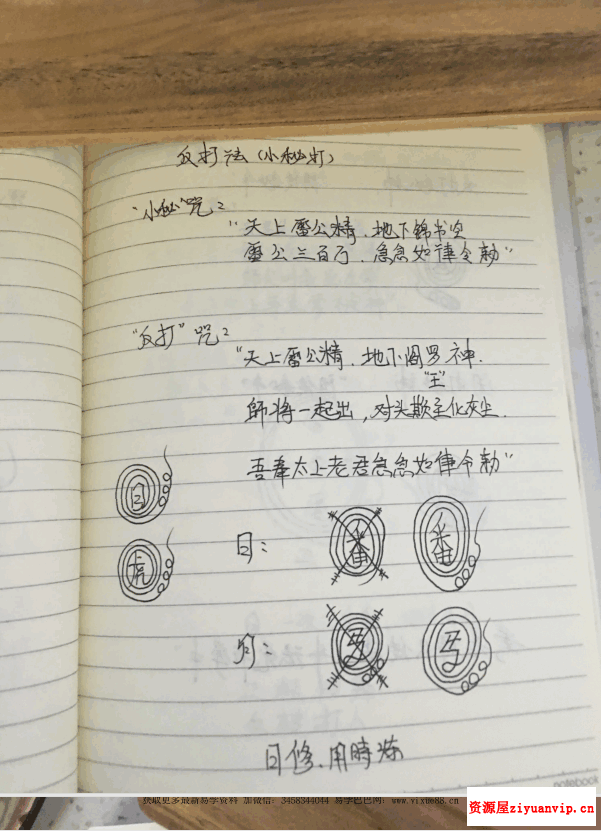 反打法(小秘打)
"小秘"咒:
"天上雷公精.地下錦書宝
雷公三百万.急急如律令勅"
"反打"咒:
"天上雷公精.地下阎罗神.
"王"
師将一起出,对头欺主化灰尘.
吾奉太上老君急急如律令勅"
日
虎
日: 番 番
月:
日修.用時炼
notebook
获取更多最新易学资料 加微信: 3458344044 易学巴巴网: www.yixue88.cn
资源屋ziyuanvip.cn